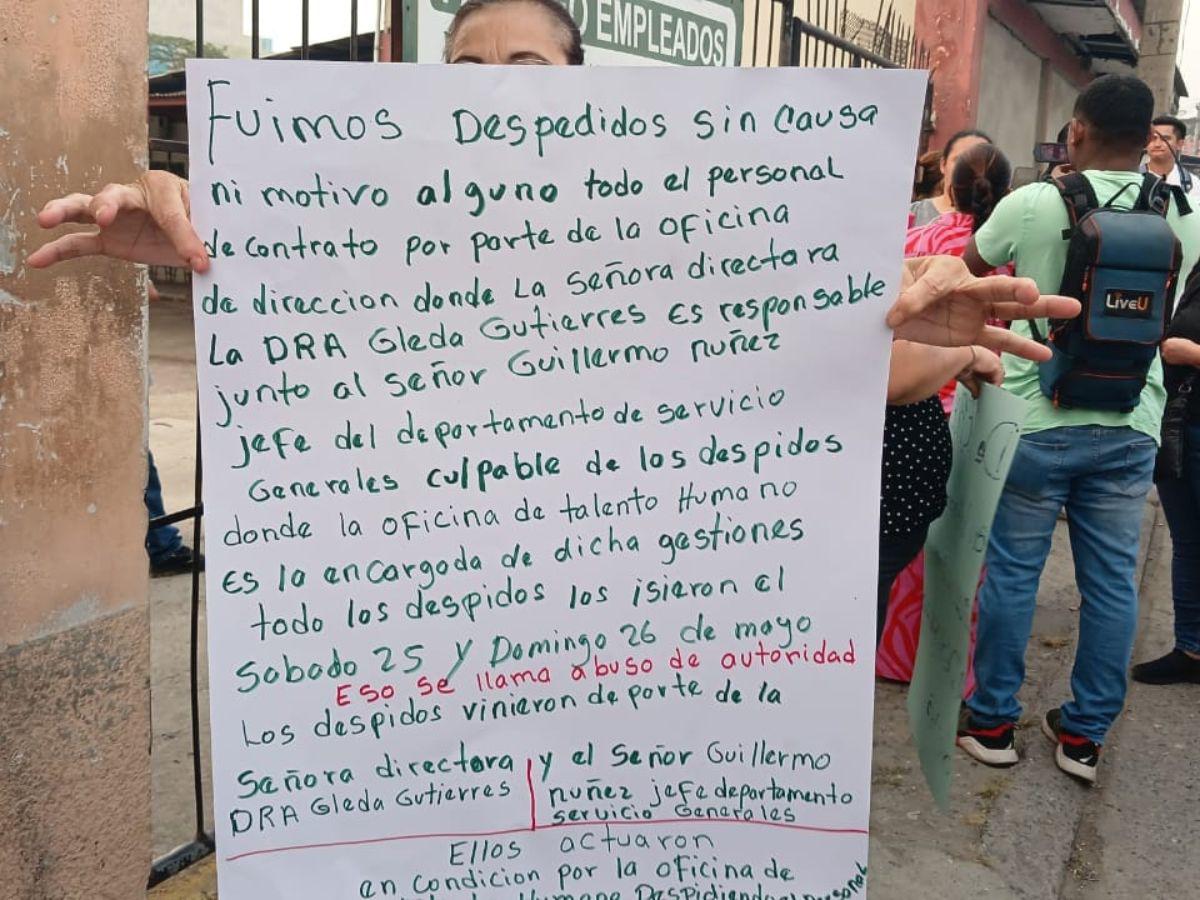 EMPLEADOS
Fuimos Despedidos sin causa
ni motivo alguno todo el personal
de contrato por parte de la oficina
de direccion donde La señora directara
La DRA Gleda Gutierres Es responsable
junto al señor Guillermo nuñez
jefe del departamento de servicio
Generales culpable de los despidos
donde la oficina de talento Humano
Es la encargada de dicha gestiones
todo los despidos los isieron el
Sabado 25 y Domingo 26 de mayo
Eso se llama abuso de autoridad
Los despidos vinieron de parte de la
Señora directora y el Señor Guillermo
DRA Gleda Gutierres nuñez jefe departamento
servicio Generales
Ellos actuaron
en condicion por la oficina de
Humano Despidiendo el personal
LiveU